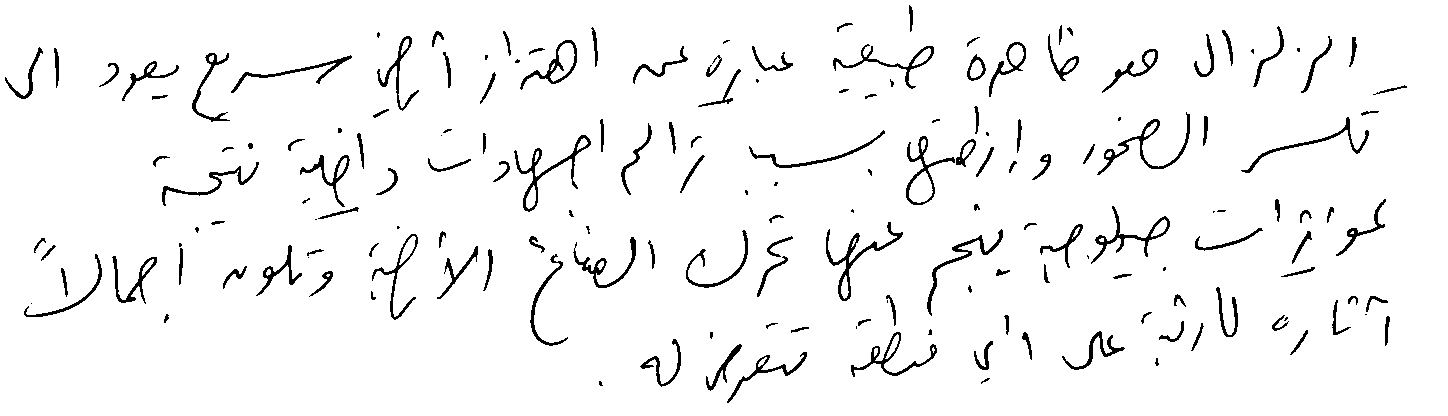 الزلزال هو ظاهرة طبيعية عبارة عن اهتزاز أرضي سريع يعود الى
تكسر الصخور وإزاحتها بسبب تراكم اجهادات داخلية نتيجة
لمؤثرات جيولوجية ينجم عنها تحرك الصفائح الأرضية وتكون أجمالاً
آثاره كارثية على اي منطقة تتعرض له .